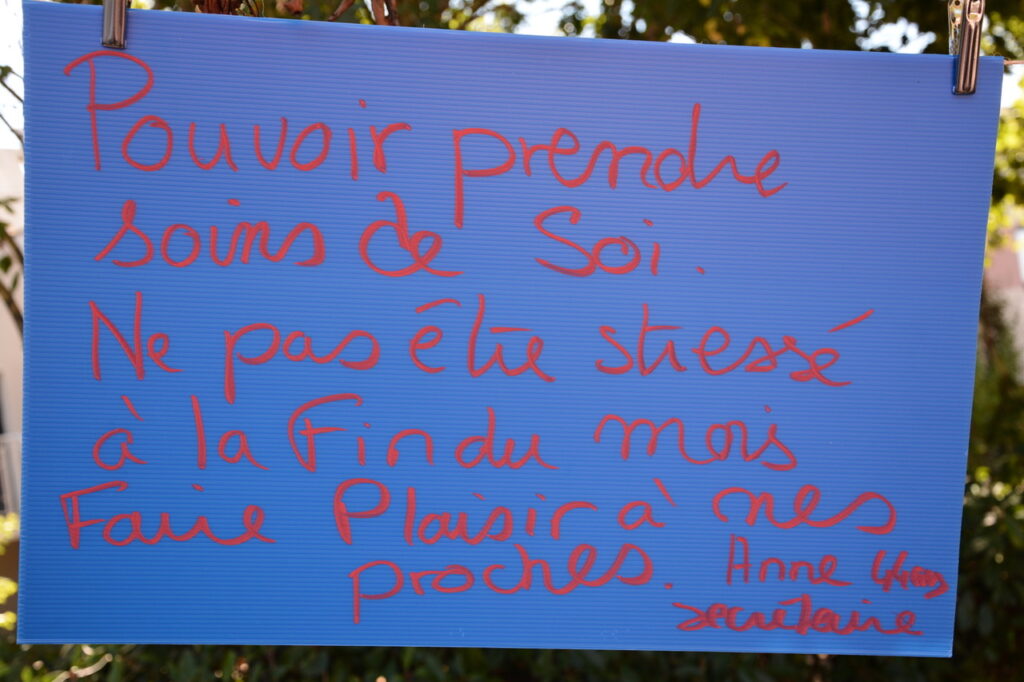 Pouvoir prendre
soins de Soi.
Ne pas être stressé
à la Fin du mois
Faire Plaisir à mes
proches. Anne 44ans
secrétaire